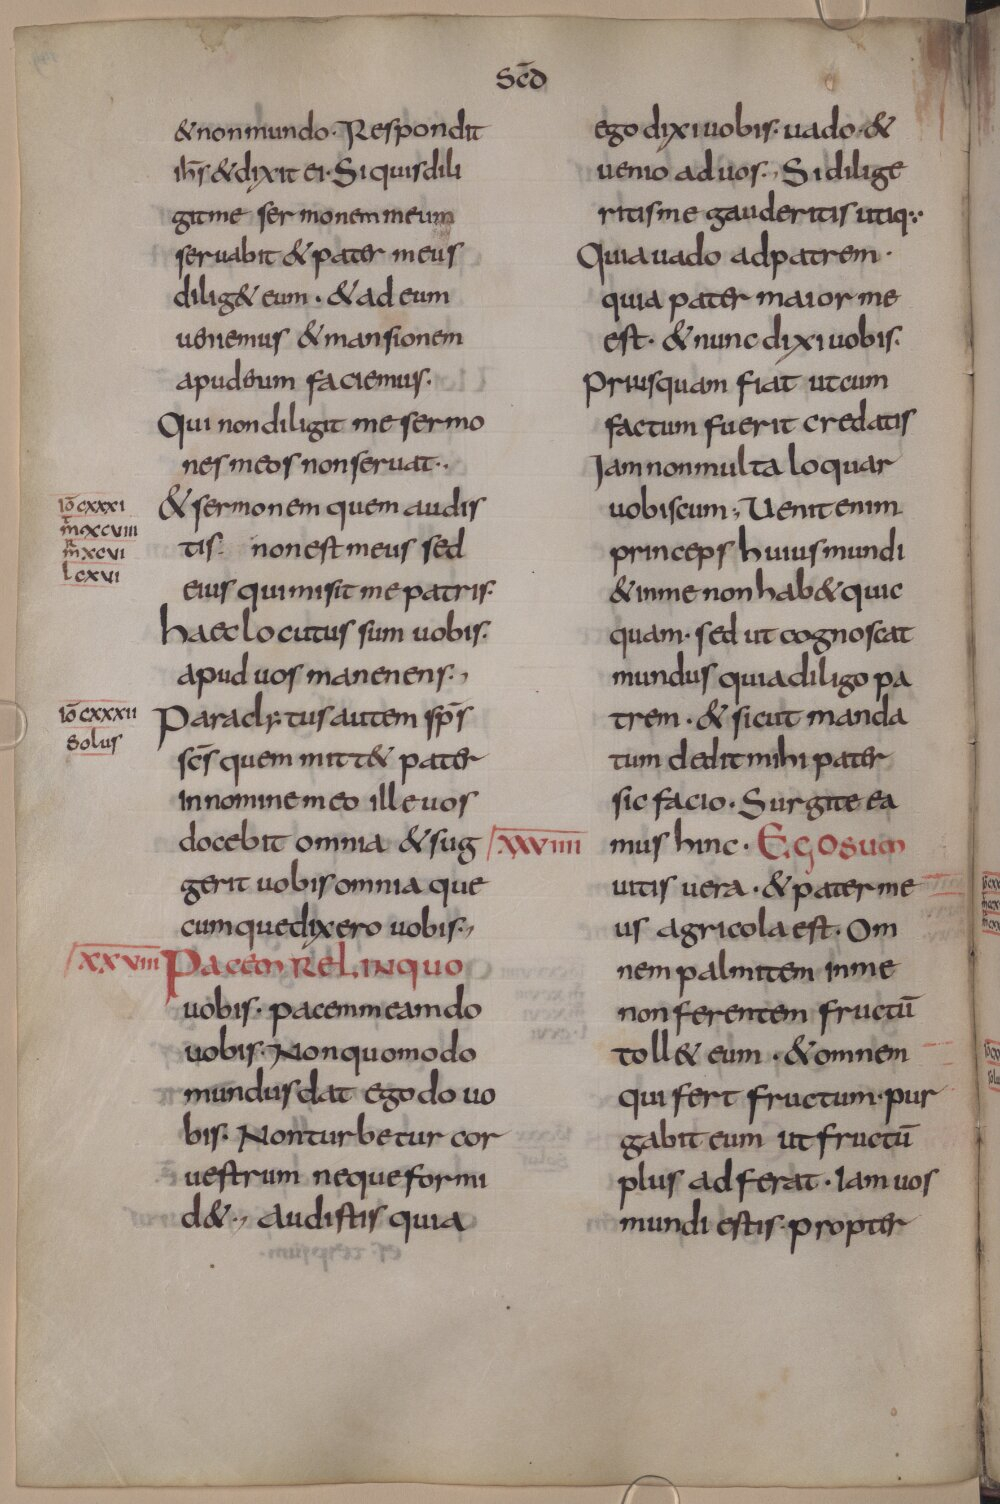 Sēd
& non mundo. Respondit
ih̄s & dixit ei. Si quis dili
git me sermonem meum
seruabit & pater meus
dilig& eum. & ad eum
ueniemus & mansionem
apud eum faciemus.
Qui non diligit me sermo
nes meos non seruat..
iō cxxxi
m̄ xcviii
m̄ xcvi
l cxvi
& sermonem quem audis
tis. non est meus sed
eius qui misit me patris.
haec locutus sum uobis.
apud uos manenens.,
iō cxxxii
solus
Paraclytus autem sp̄s
sc̄s quem mitt& pater
in nomine meo ille uos
docebit omnia & sug
gerit uobis omnia que
cumque dixero uobis.,
xxviii Pacem relinquo
uobis. pacem meam do
uobis. Non quomodo
mundus dat ego do uo
bis. Non turbetur cor
uestrum neque formi
d&., audistis quia
ego dixi uobis. uado. &
uenio ad uos., Si dilige
ritis me gauderitis utiq:.
Quia uado ad patrem.
quia pater maior me
est. & nunc dixi uobis.
Priusquam fiat ut cum
factum fuerit credatis
Iam non multa loquar
uobiscum., Uenit enim
princeps huius mundi
& in me non hab& quic
quam. sed ut cognoscat
mundus quia diligo pa
trem. & sicut manda
tum dedit mihi pater
sic facio. Surgite ea
xxviiii mus hinc. Ego sum
uitis uera. & pater me
us agricola est. Om
nem palmitem in me
non ferentem fructū
toll& eum. & omnem
qui fert fructum. pur
gabit eum ut fructū
plus ad ferat. Iam uos
mundi estis. propter